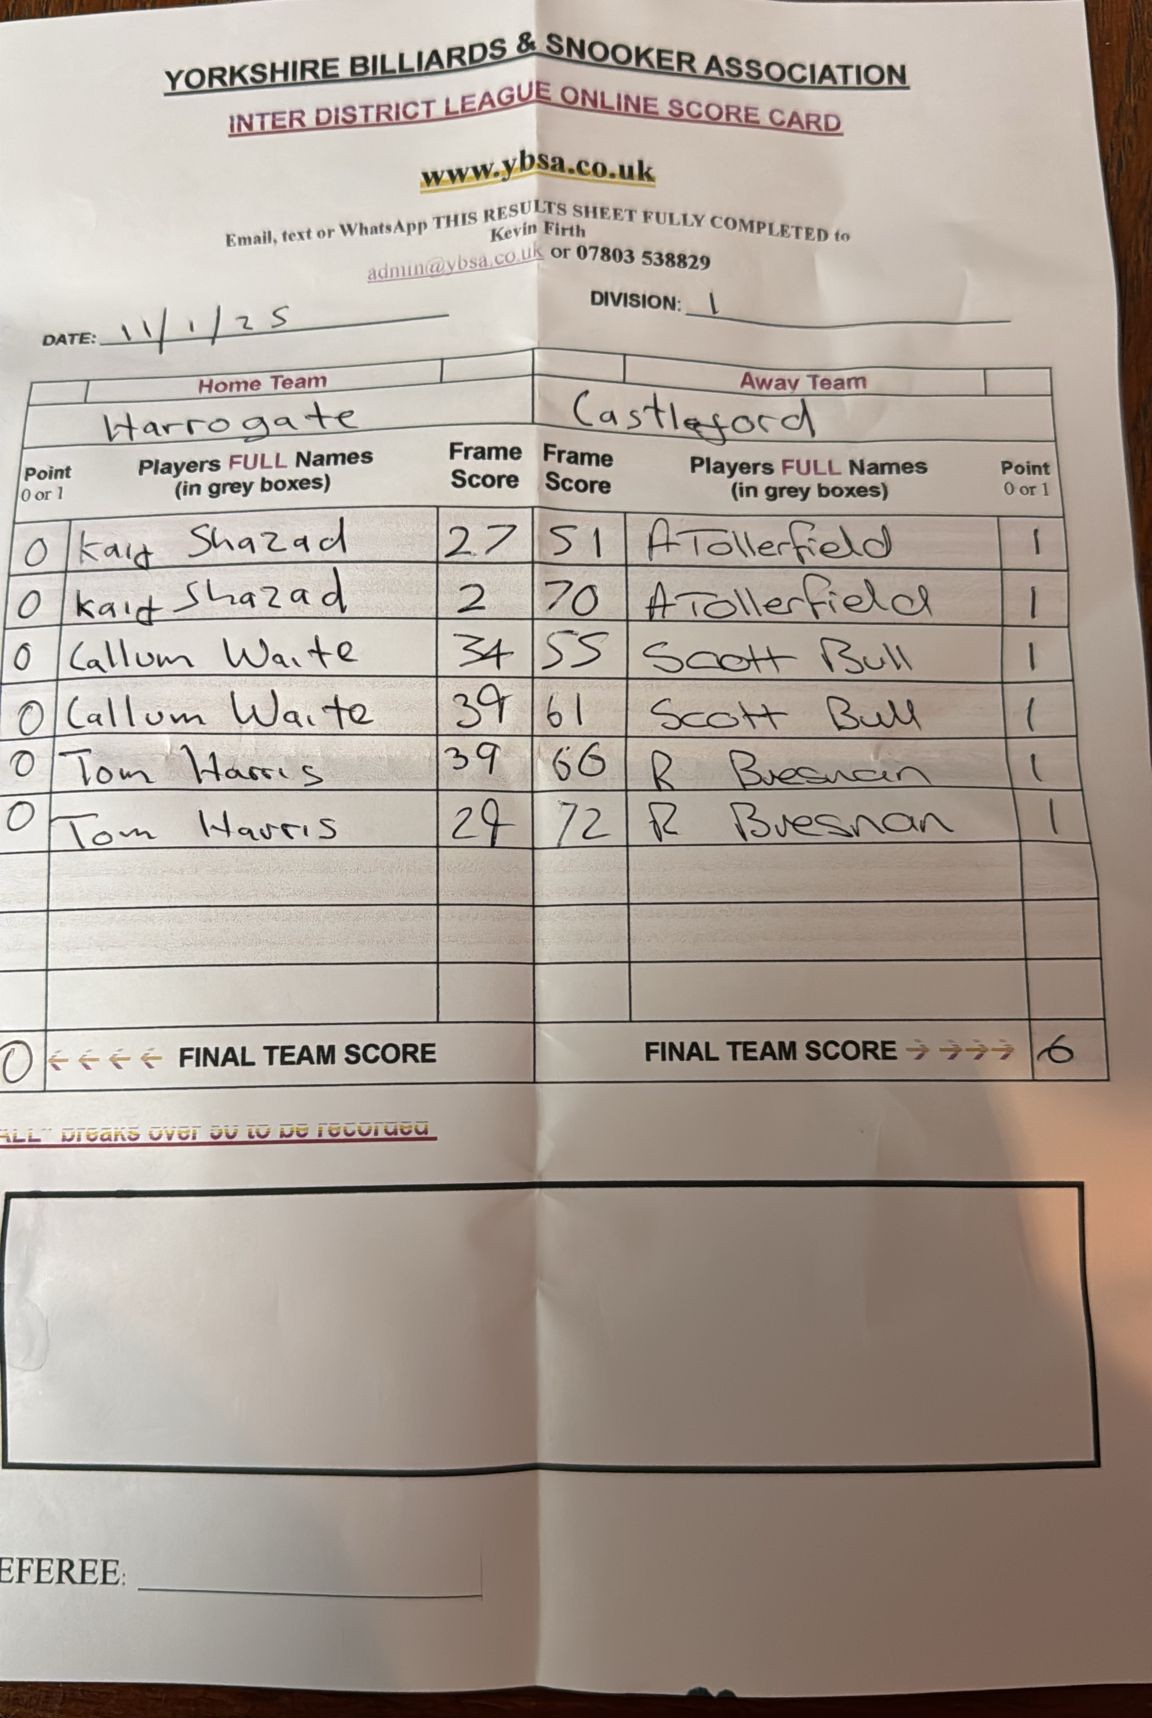 YORKSHIRE BILLIARDS & SNOOKER ASSOCIATION
INTER DISTRICT LEAGUE ONLINE SCORE CARD
www.ybsa.co.uk
Email, text or WhatsApp THIS RESULTS SHEET FULLY COMPLETED to
Kevin Firth
admin@ybsa.co.uk or 07803 538829
DATE: 11/1/25 DIVISION: 1
Home Team Away Team
Harrogate Castleford
Point 0 or 1 Players FULL Names (in grey boxes) Frame Score Frame Score Players FULL Names (in grey boxes) Point 0 or 1
0 Shazad 27 51 A Tollerfield 1
0 Shazad 2 70 A Tollerfield 1
0 Callum Waite 34 55 Scott Bull 1
0 Callum Waite 39 61 Scott Bull 1
0 Tom Harris 39 66 R Bresnan 1
0 Tom Harris 72 R Bresnan 1
0 ← ← ← ← FINAL TEAM SCORE FINAL TEAM SCORE → → → → 6
ALL" breaks over 50 to be recorded
EFEREE: